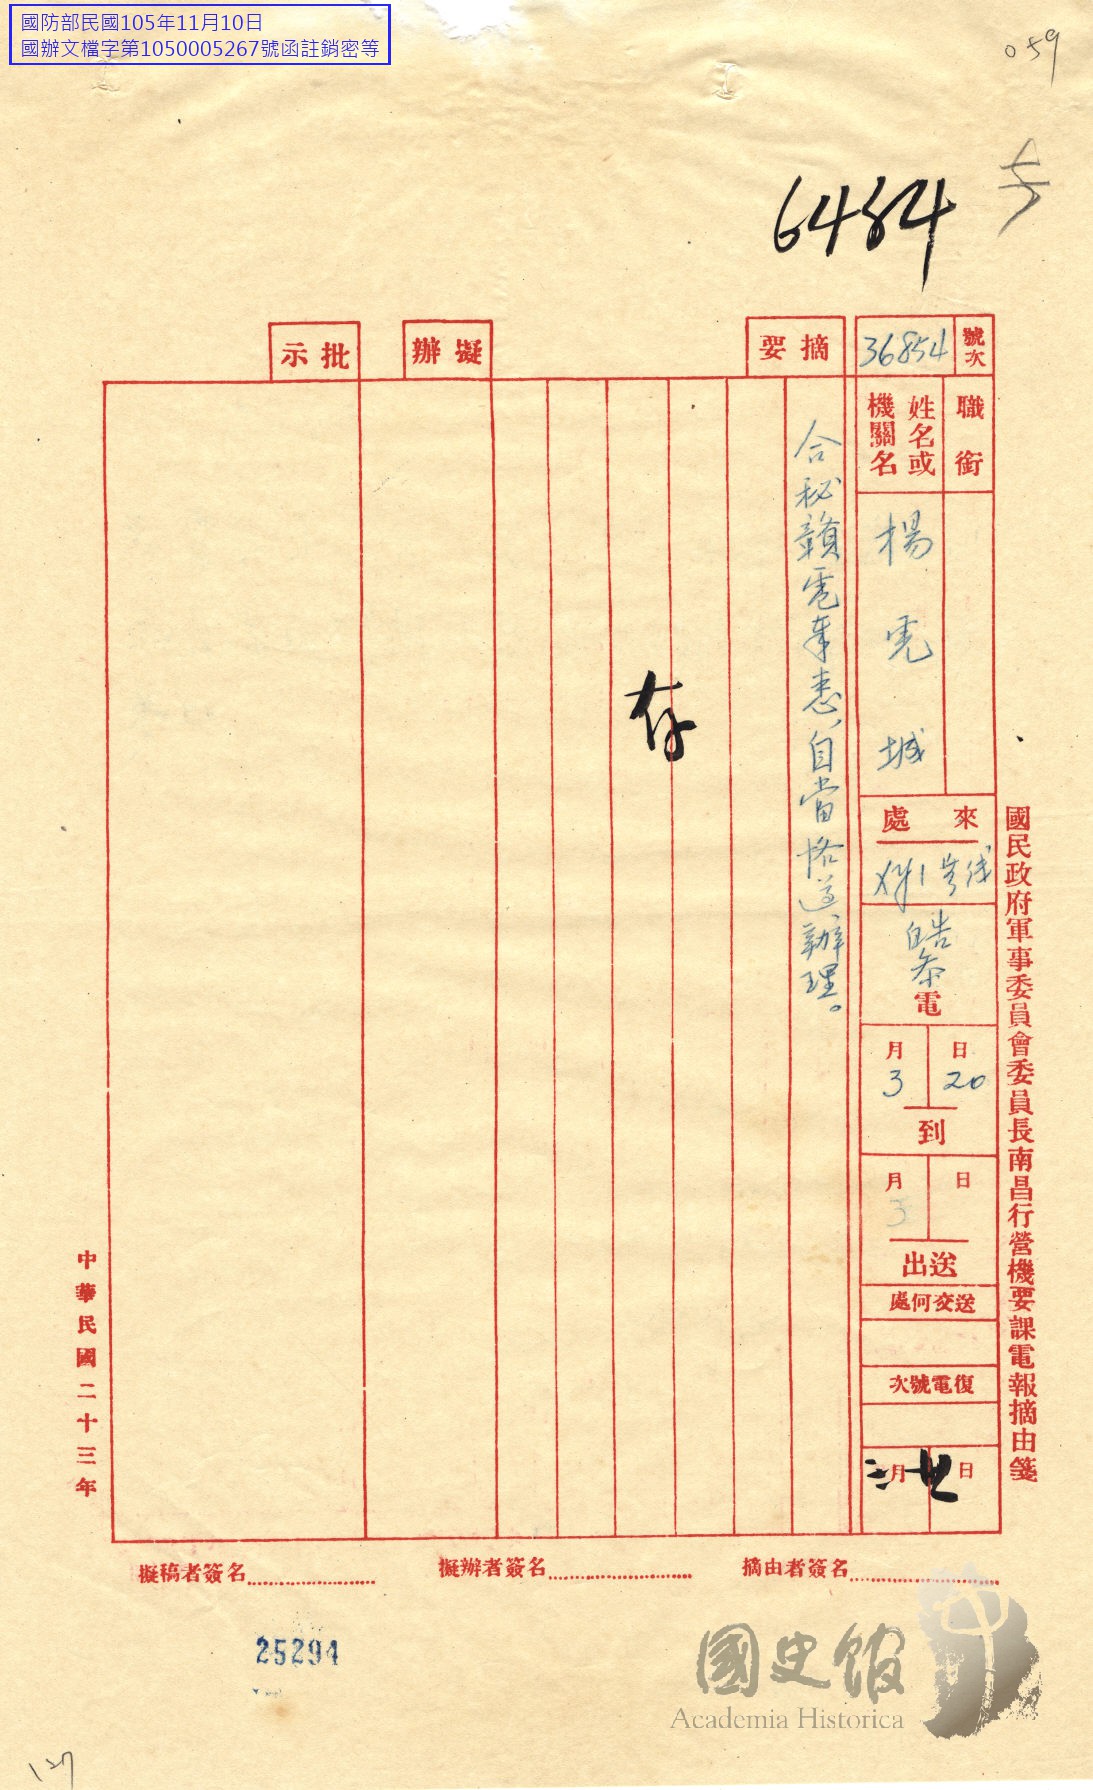 國防部民國105年11月10日
國辦文檔字第1050005267號函註銷密等
059
6484
國民政府軍事委員會委員長南昌行營機要課電報摘由箋
號次
36854
職銜
姓名或
機關名
楊虎城
來處
電
皓
月 3
日 20
到
月 3
日
送出
送交何處
復電號次
三月
日
摘要
合秘贛電奉悉,自當恪遵辦理。
存
擬辦
批示
中華民國二十三年
摘由者簽名
擬辦者簽名
擬稿者簽名
25294
國史館
Academia Historica
127